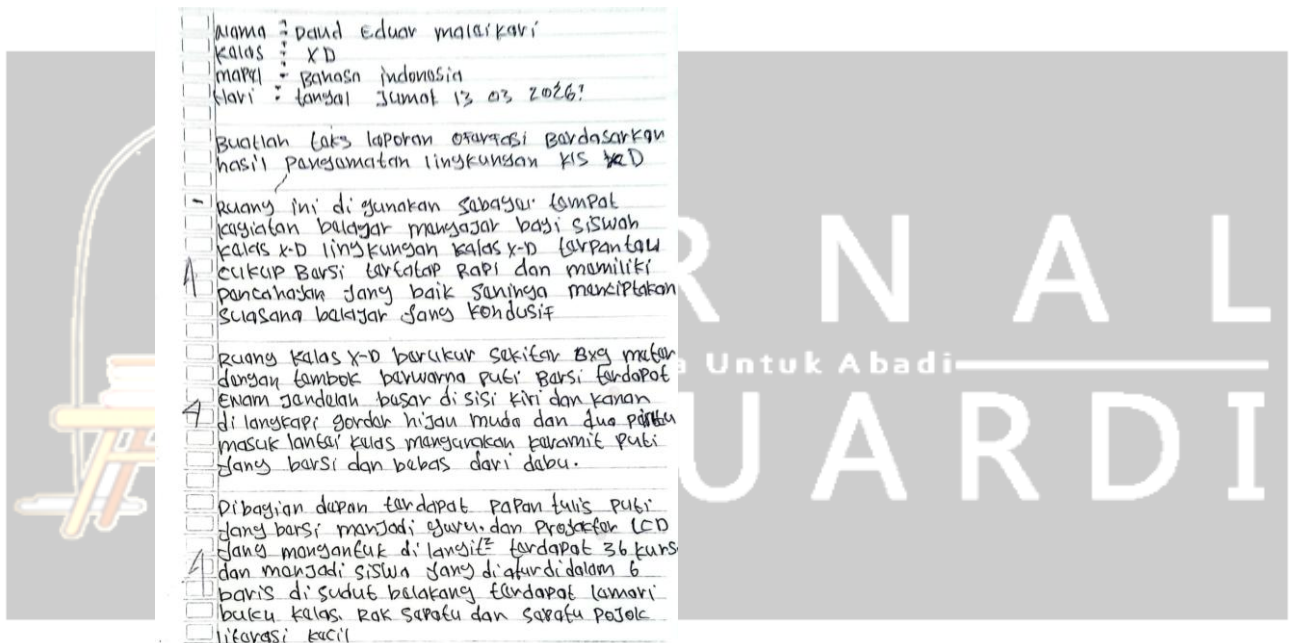 Nama : Daud Eduar malaikari
Kalas : XD
mapel : Bahasa indonasia
Hari : tanggal Jumat 13 03 2026?
Buatlah taks laporan Bardasarkan
hasil pangamatan lingkungan kls XD
- Ruang ini di gunakan sabagai tampat
kagiatan balajar mangajar bagi siswah
kalas X-D lingkungan kalas X-D tarpantau
cukup Barsi tartatap Rapi dan mamiliki
pancahayan Jang baik saninga manciptakan
suasana balajar Jang kondusif
4
Ruang kalas X-D barukur sekitar 8x9 matar
dangan tambok barwarna puti Barsi tardapat
Enam Jandelah basar di sisi kiri dan kanan
di langkapi gordar hijau muda dan dua pintu
masuk lantai kalas mangunakan karamit puti
Jang barsi dan babas dari dabu.
4
Dibagian dapan tardapat papan tulis puti
Jang barsi manJadi guru. dan Projactor LCD
Jang mangantuk di langit² tardapat 36 kurs
dan manJadi siswa Jang diatur didalam 6
baris di sudut balakang tardapat lamari
buku kalas. Rak sapatu dan sapatu pojok
litarasi kacil
4
R N A L
a Untuk Abadi
UARDI